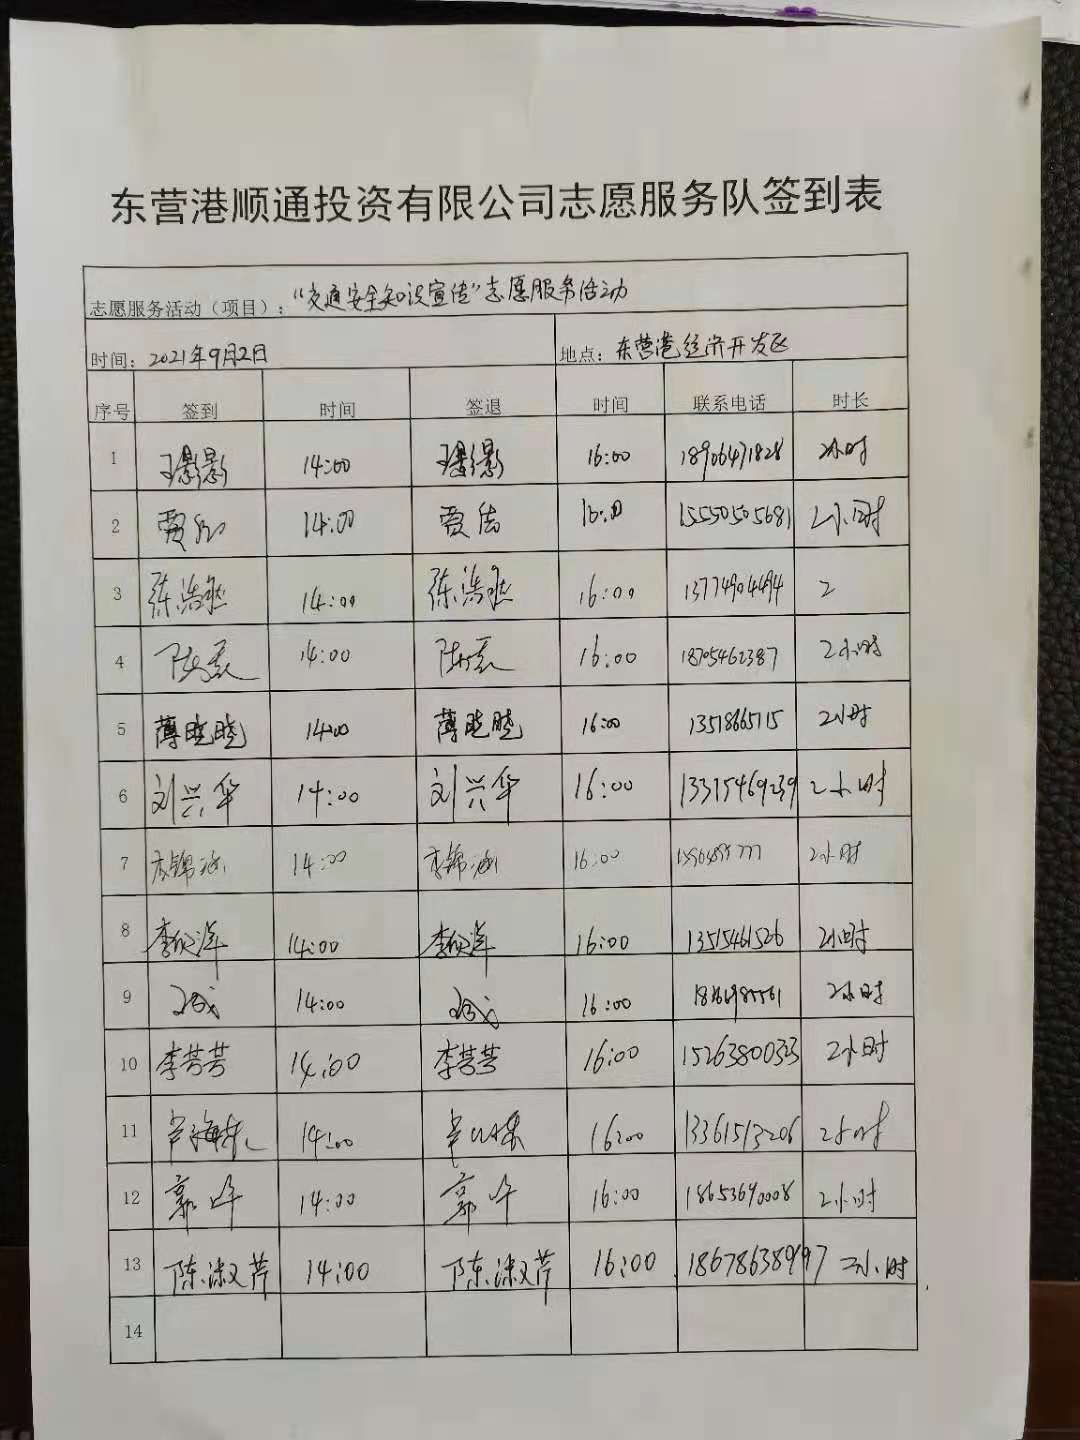 东营港顺通投资有限公司志愿服务队签到表
志愿服务活动（项目）：“交通安全知识宣传”志愿服务活动
时间：2021年9月2日 地点：东营港经济开发区
序号 签到 时间 签退 时间 联系电话 时长
1 王影影 14:00 王影影 16:00 18906471828 2小时
2 贾 14:00 贾 16:00 15550505681 2小时
3 张浩然 14:00 张浩然 16:00 13774904494 2
4 陈 14:00 陈 16:00 18705462387 2小时
5 薄晓晓 14:00 薄晓晓 16:00 13518665115 2小时
6 刘兴华 14:00 刘兴华 16:00 13315469239 2小时
7 李锦涵 14:00 李锦涵 16:00 2小时
8 李欣洋 14:00 李欣洋 16:00 13515461526 2小时
9 14:00 16:00 2小时
10 李芳芳 14:00 李芳芳 16:00 15263800323 2小时
11 14:00 16:00 13361513206 2小时
12 郭 14:00 郭 16:00 18653690008 2小时
13 陈淑芹 14:00 陈淑芹 16:00 2小时
14